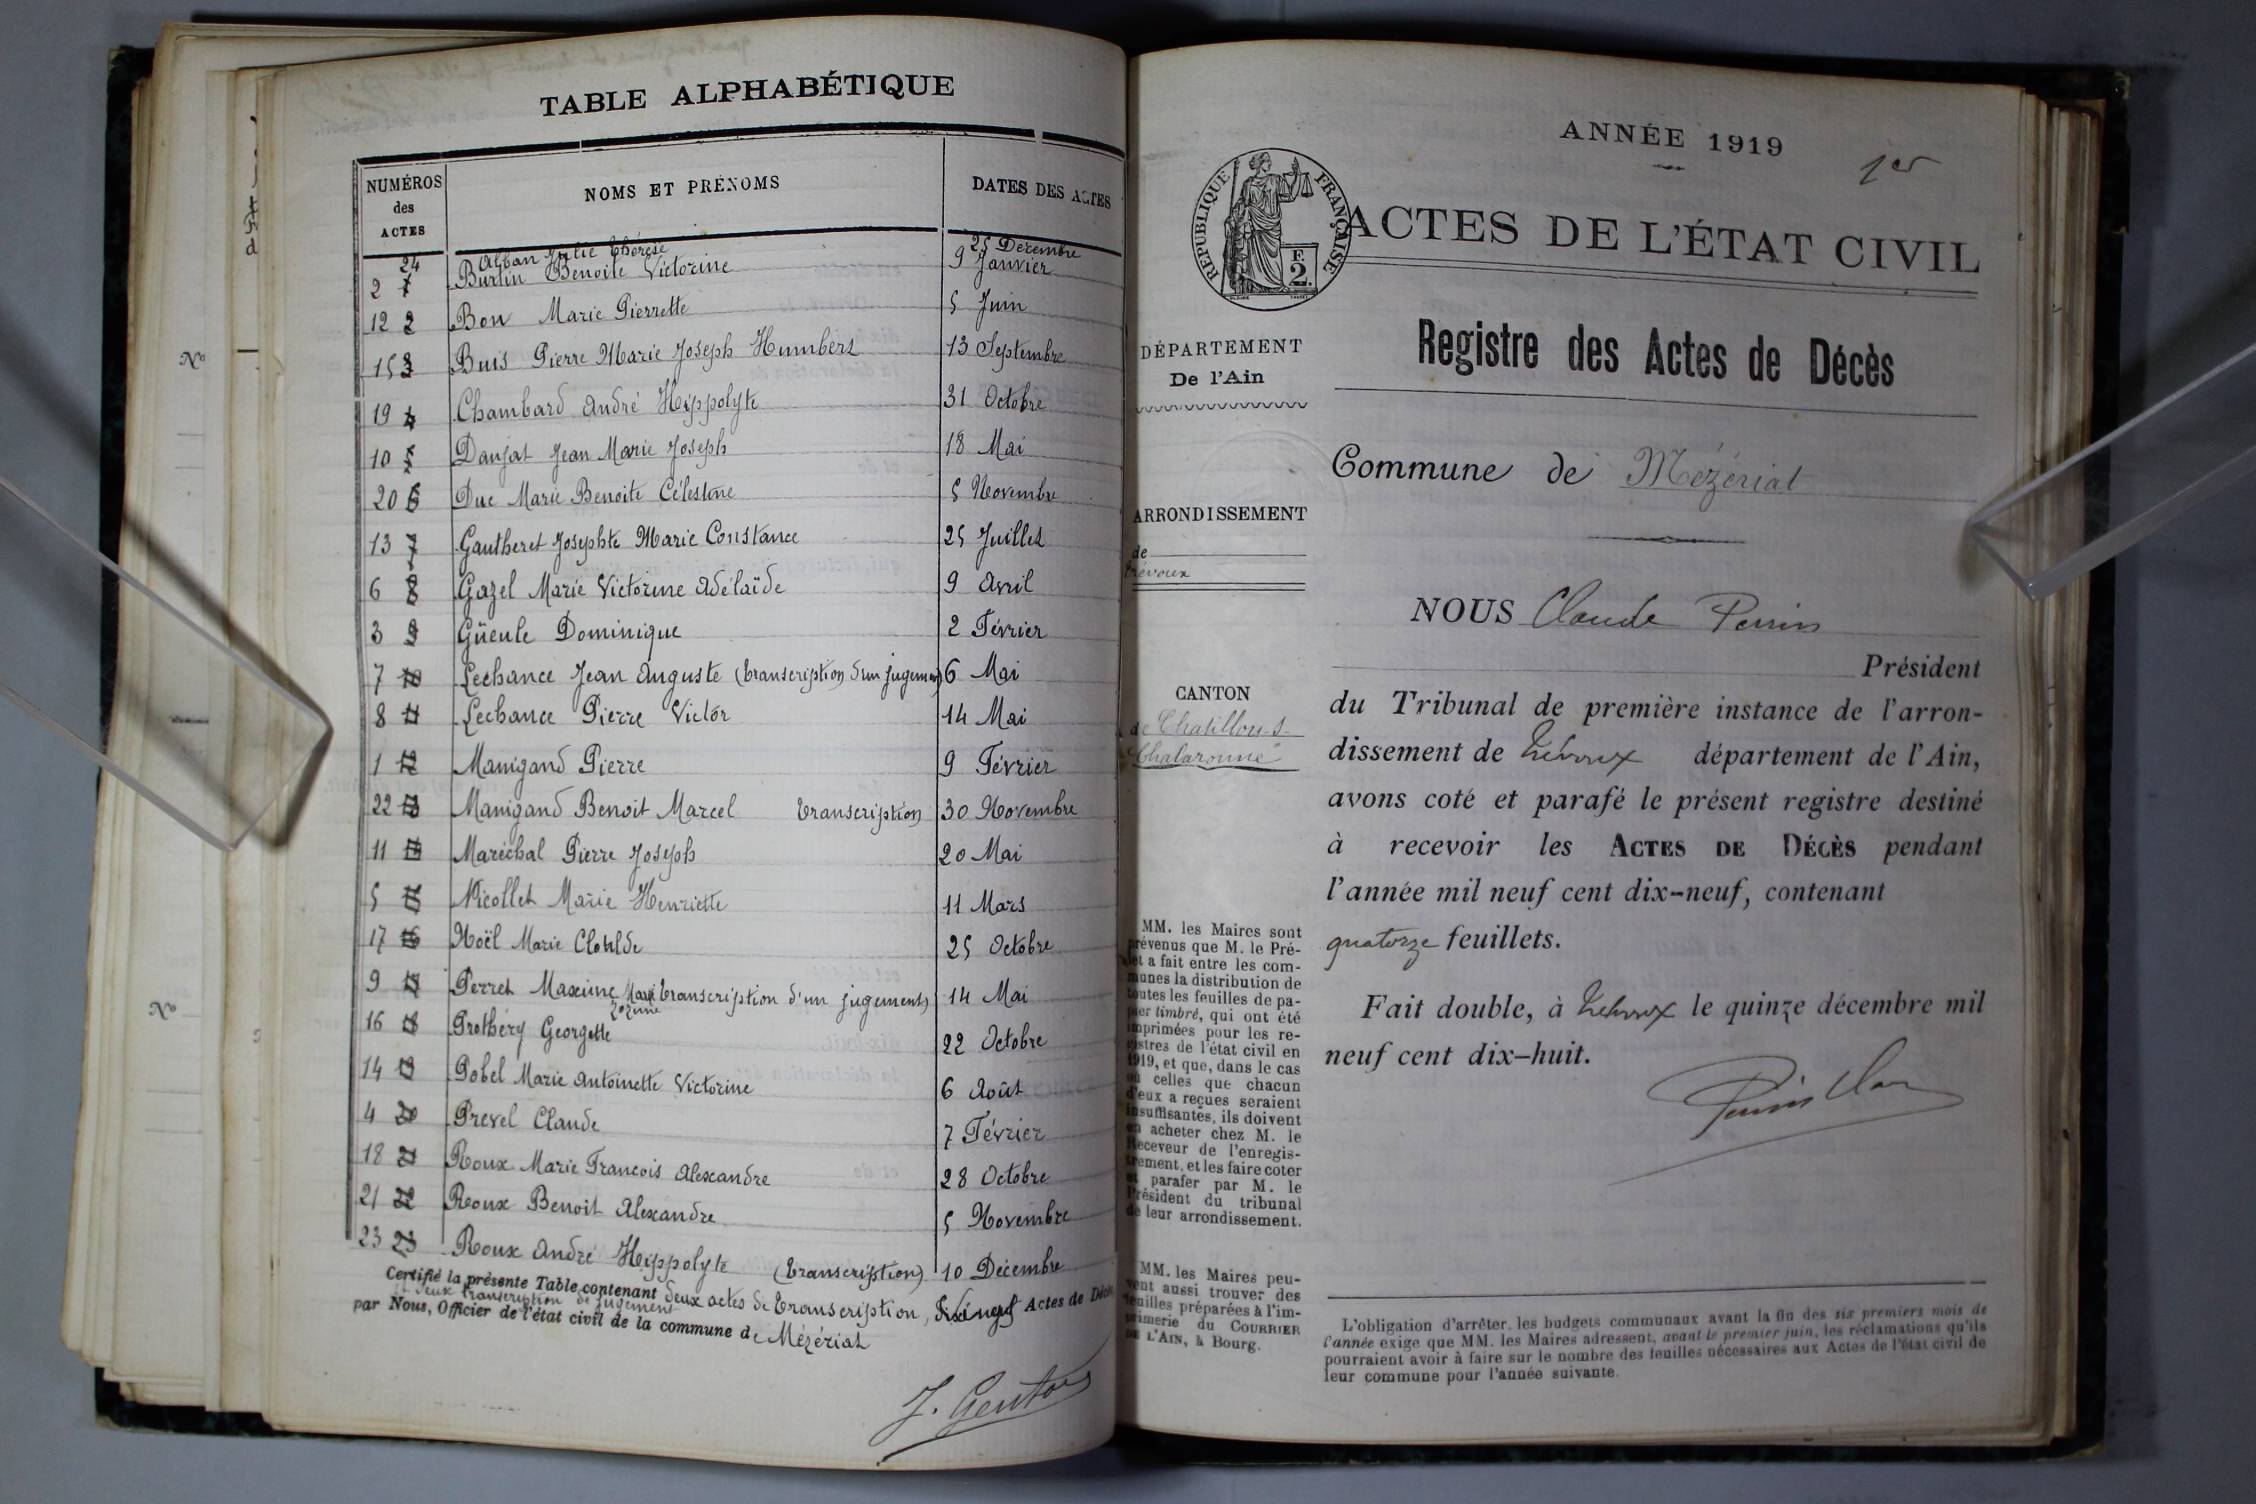 TABLE ALPHABÉTIQUE
NUMÉROS des ACTES
NOMS ET PRÉNOMS
DATES DES ACTES
24 Alban Julie Thérèse 25 Décembre
2 1 Burtin Benoite Victorine 9 Janvier
12 2 Bon Marie Pierrette 5 Juin
15 3 Buis Pierre Marie Joseph Humbert 13 Septembre
19 4 Chambard André Hippolyte 31 Octobre
10 5 Danjat Jean Marie Joseph 18 Mai
20 6 Duc Marie Benoite Célestine 5 Novembre
13 7 Gautheret Josephte Marie Constance 25 Juillet
6 8 Gazel Marie Victorine Adélaïde 9 Avril
3 9 Güeule Dominique 2 Février
7 10 Lechance Jean Auguste (transcription d'un jugement) 6 Mai
8 11 Lechance Pierre Victor 14 Mai
1 12 Manigand Pierre 9 Février
22 13 Manigand Benoit Marcel transcription 30 Novembre
11 14 Maréchal Pierre Joseph 20 Mai
5 15 Nicollet Marie Henriette 11 Mars
17 16 Noël Marie Clotilde 25 Octobre
9 17 Perret Maxime Marie Zozime transcription d'un jugement) 14 Mai
16 18 Prothéry Georgette 22 Octobre
14 19 Pobel Marie Antoinette Victorine 6 Août
4 20 Prevel Claude 7 Février
18 21 Roux Marie François Alexandre 28 Octobre
21 22 Roux Benoit Alexandre 5 Novembre
23 23 Roux André Hippolyte (transcription) 10 Décembre
Certifié la présente Table contenant deux actes de transcription, Actes de Décès
deux transcription de jugement
par Nous, Officier de l'état civil de la commune de Mézériat
J. Gentou
Nº
Nº
ANNÉE 1919
1er
RÉPUBLIQUE FRANÇAISE
F.
2.
ACTES DE L'ÉTAT CIVIL
DÉPARTEMENT
De l'Ain
Registre des Actes de Décès
Commune de Mézériat
ARRONDISSEMENT
de
Trévoux
CANTON
de Chatillon-s-
Chalaronne
NOUS Claude Perrin
Président
du Tribunal de première instance de l'arron-
dissement de Trévoux département de l'Ain,
avons coté et parafé le présent registre destiné
à recevoir les ACTES DE DÉCÈS pendant
l'année mil neuf cent dix-neuf, contenant
quatorze feuillets.
Fait double, à Trévoux le quinze décembre mil
neuf cent dix-huit.
Perrin Clau
MM. les Maires sont
prévenus que M. le Pré-
fet a fait entre les com-
munes la distribution de
toutes les feuilles de pa-
pier timbré, qui ont été
imprimées pour les re-
gistres de l'état civil en
1919, et que, dans le cas
où celles que chacun
d'eux a reçues seraient
insuffisantes, ils doivent
en acheter chez M. le
Receveur de l'enregis-
trement, et les faire coter
et parafer par M. le
Président du tribunal
de leur arrondissement.
MM. les Maires peu-
vent aussi trouver des
feuilles préparées à l'im-
primerie du COURRIER
DE L'AIN, à Bourg.
L'obligation d'arrêter les budgets communaux avant la fin des six premiers mois de
l'année exige que MM. les Maires adressent, avant le premier juin, les réclamations qu'ils
pourraient avoir à faire sur le nombre des feuilles nécessaires aux Actes de l'état civil de
leur commune pour l'année suivante.